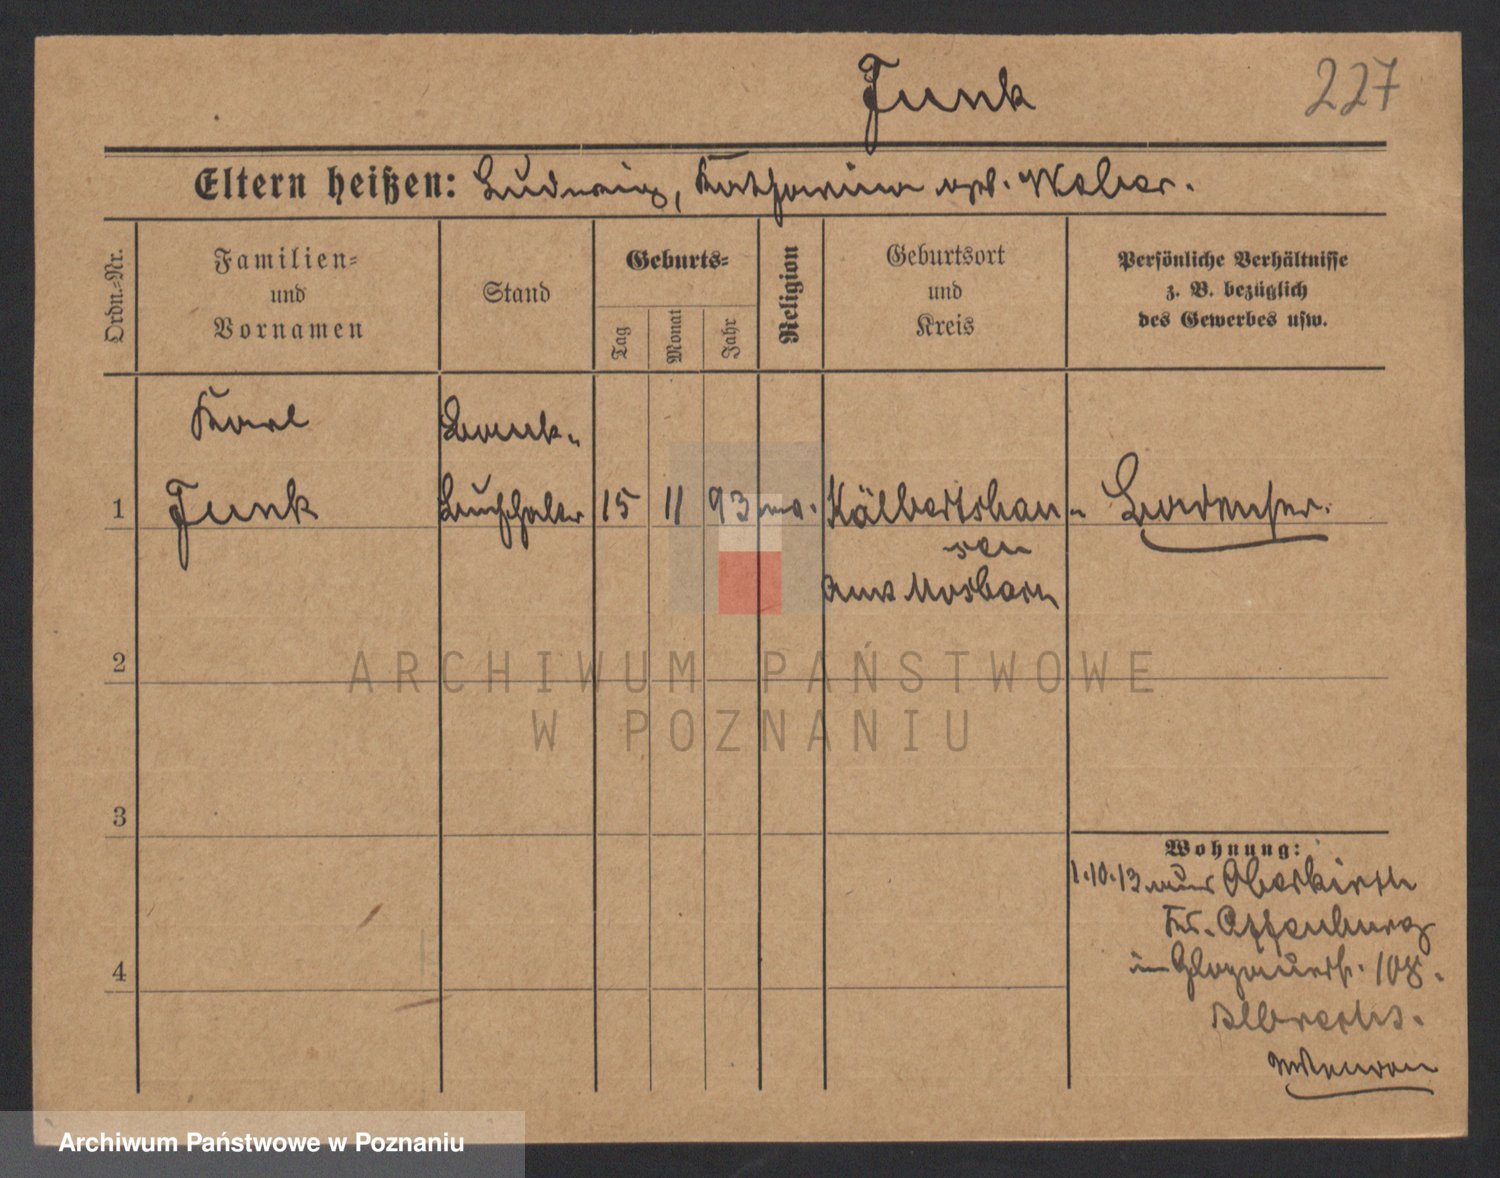 Funk 227
Eltern heißen: Ludwig, Katharina geb. Weber.
Ordn.-Nr.
Familien-
und
Vornamen
Stand
Geburts-
Tag
Monat
Jahr
Religion
Geburtsort
und
Kreis
Persönliche Verhältnisse
z. B. bezüglich
des Gewerbes usw.
Karl Bank-
1 Funk Buchhalter 15 11 93 Kälbertshau-
sen
Amt Mosbach
2
ARCHIWUM PAŃSTWOWE
W POZNANIU
3
Wohnung:
1.10.13 Oberkirch
Kr. Offenburg
in Glogauerstr. 108.
4
Albrecht
Archiwum Państwowe w Poznaniu